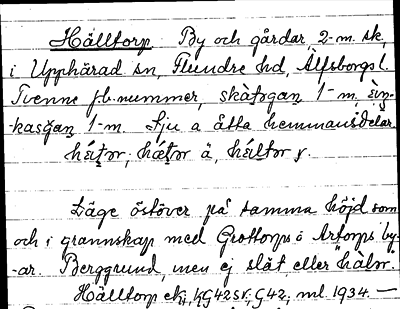 Hälltorp. By och gårdar, 2 m. sk.,
i Upphärad sn, Flundre hd, Älfsborgs l.
Tvenne jb. nummer, skàtəgaṇ 1 m.
-kasgaṇ 1 m. Sju a åtta hemmansdelar.
hǽltor y.
Läge öster på samma höjd som
och i grannskap med Grottorps o Artorps by-
-ar. Berggrund, men ej slät eller
Hälltorp ek, KG42SV, G42, ml. 1934. —